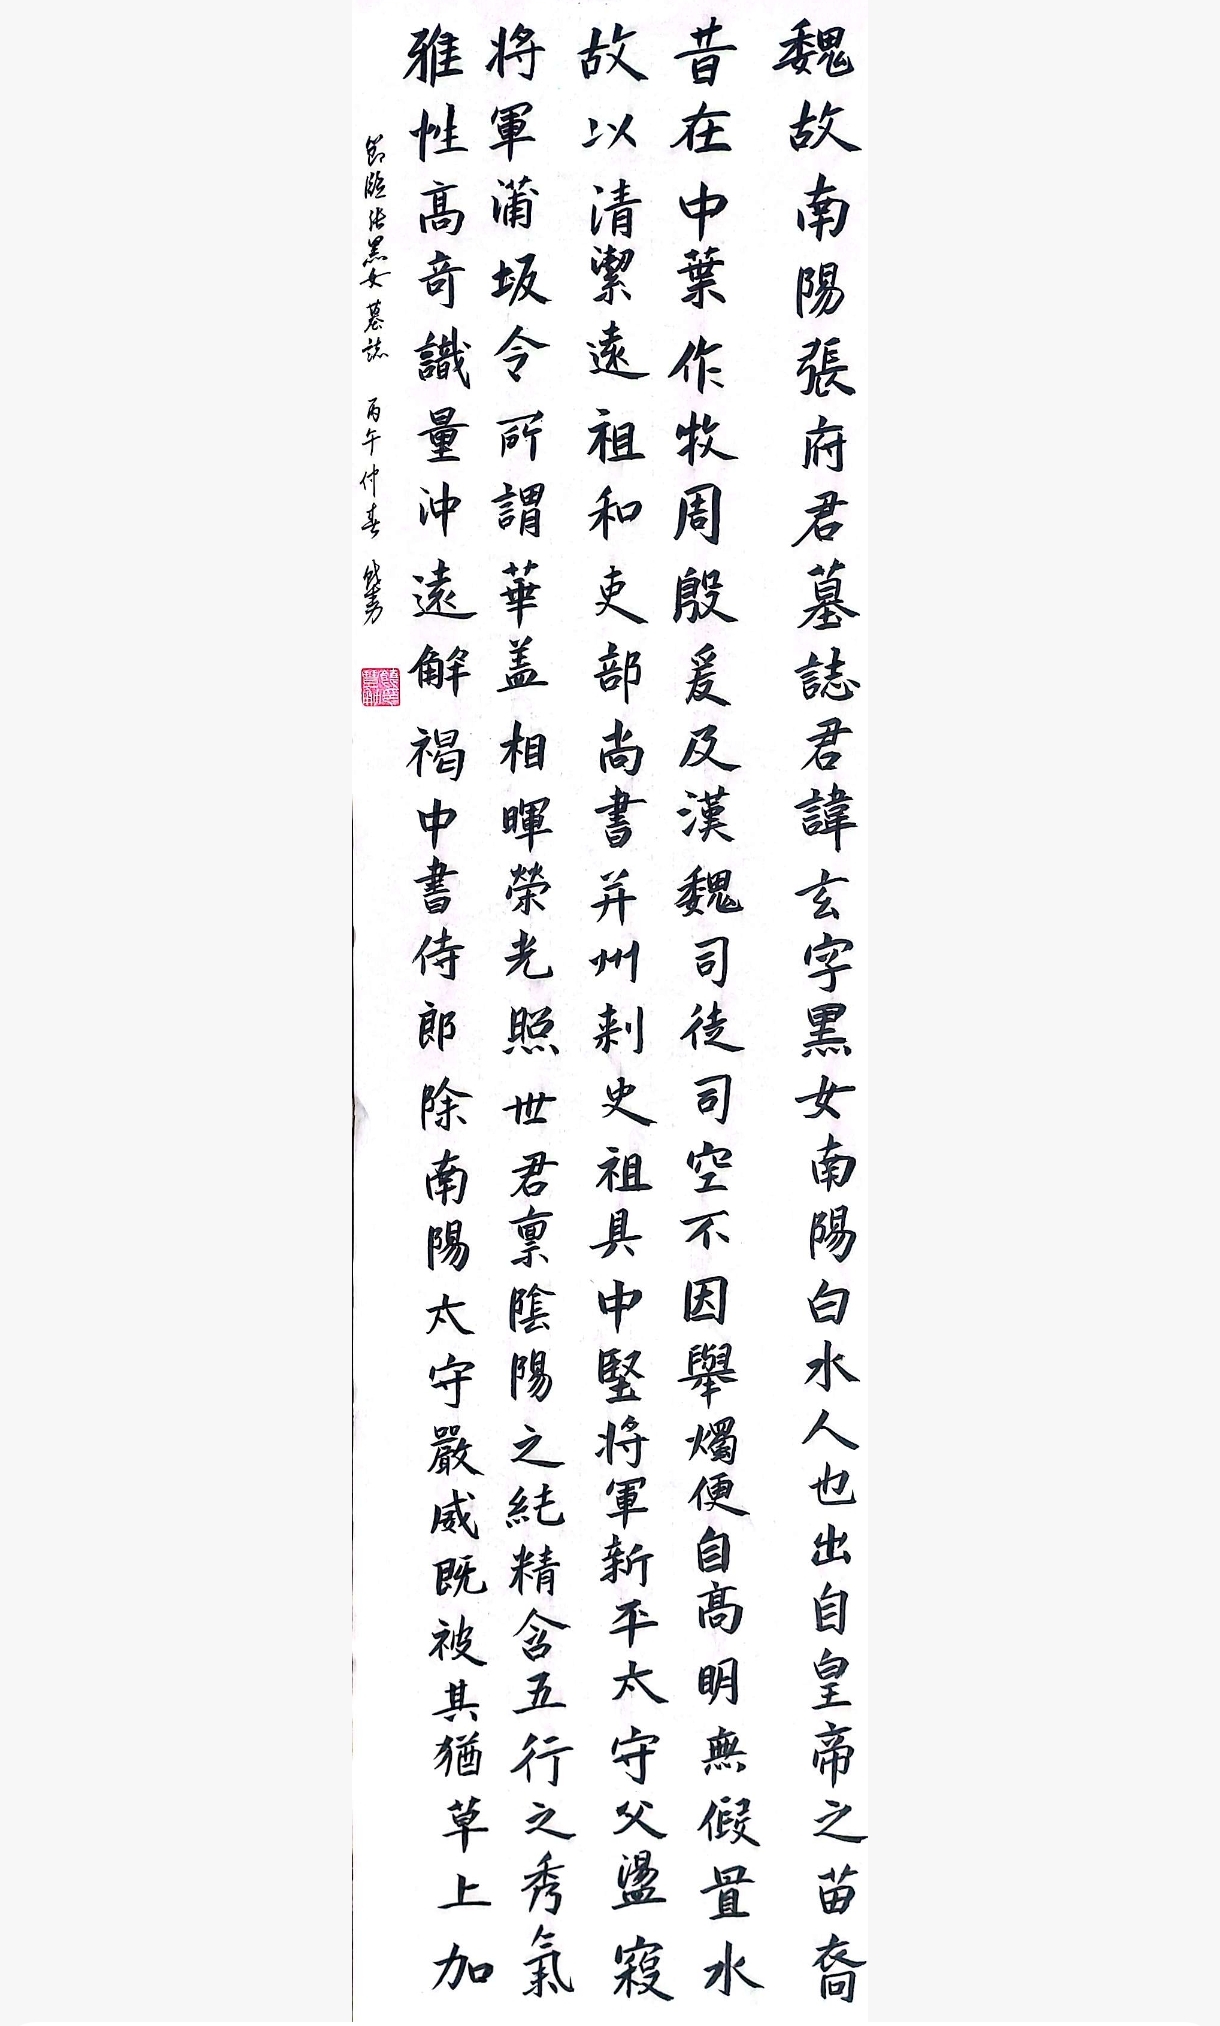 魏故南陽張府君墓誌君諱玄字黑女南陽白水人也出自皇帝之苗裔
昔在中葉作牧周殷爰及漢魏司徒司空不因舉燭便自高明無假置水
故以清潔遠祖和吏部尚書并州刺史祖具中堅將軍新平太守父盪寇
將軍蒲坂令所謂華盖相暉榮光照世君禀陰陽之純精含五行之秀氣
雅性高奇識量沖遠解褐中書侍郎除南陽太守嚴威既被其猶草上加
節臨張黑女墓誌 丙午仲春